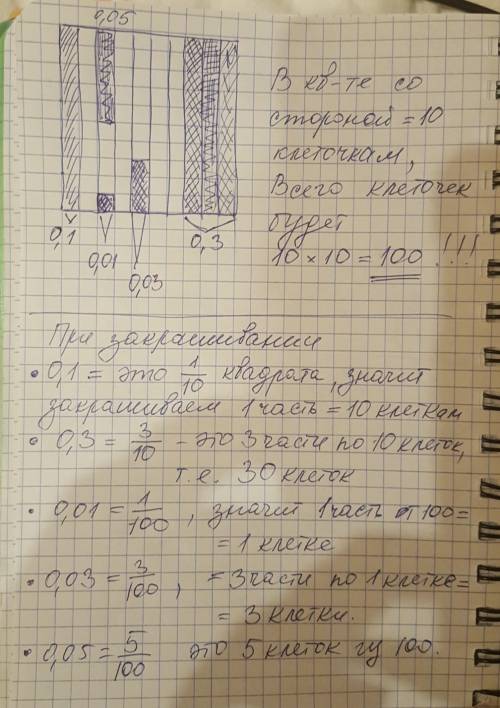 0,05
0,1
0,01
0,03
0,3
В кв-те со
стороной = 10
клеточкам,
Всего клеточек
будет
10 × 10 = 100 !!!
При закрашивании
• 0,1 = это 1/10 квадрата, значит
закрашиваем 1 часть = 10 клеткам
• 0,3 = 3/10 - это 3 части по 10 клеток,
т.е. 30 клеток
• 0,01 = 1/100, значит 1 часть от 100 =
= 1 клетке
• 0,03 = 3/100, = 3 части по 1 клетке =
= 3 клетки.
• 0,05 = 5/100 это 5 клеток из 100.